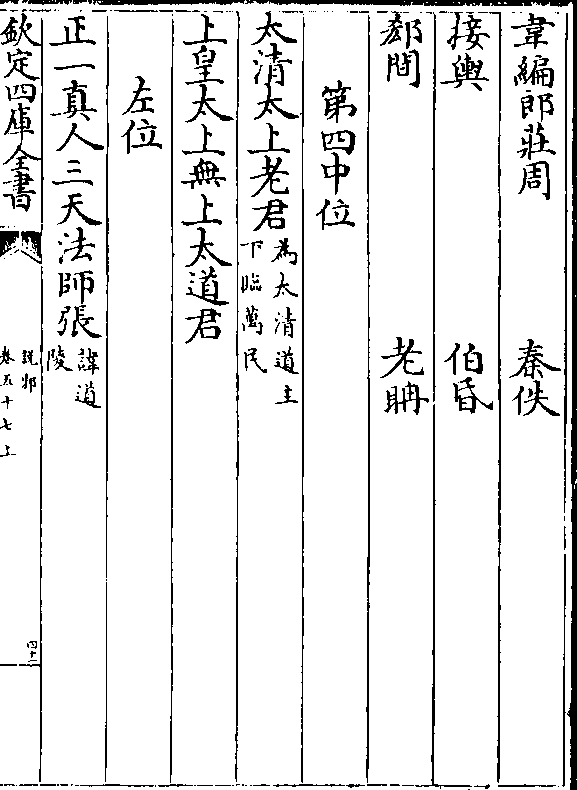 韋編郎莊周　秦佚
接輿　伯昏
郄間　老聃
第四中位
太清太上老君為太清道主下臨萬民
上皇太上無上太道君
左位
正一真人三天法師張諱道陵
欽定四庫全書
說郛
卷五十七上
四十二